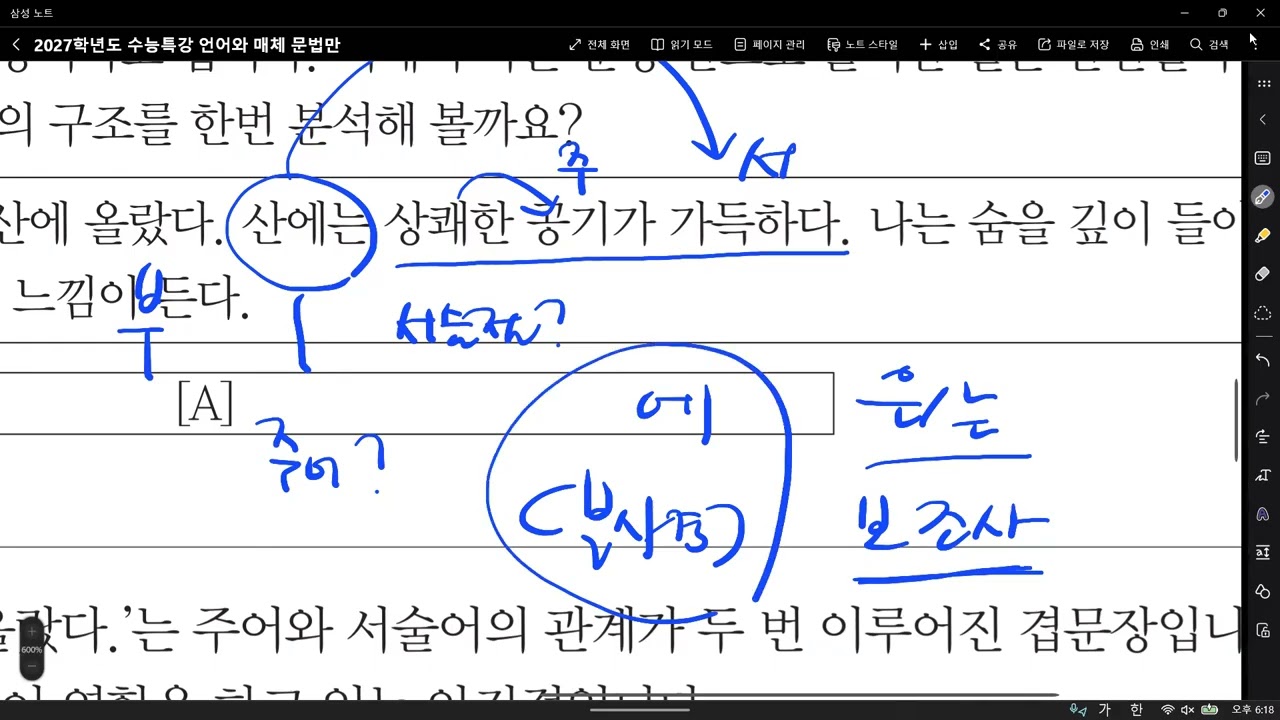 삼성 노트
2027학년도 수능특강 언어와 매체 문법만
전체 화면 읽기 모드 페이지 관리 노트 스타일 삽입 공유 파일로 저장 인쇄 검색
의 구조를 한번 분석해 볼까요?
주 서
산에 올랐다. 산에는 상쾌한 공기가 가득하다. 나는 숨을 깊이 들이
느낌이 든다.
부
서술절?
[A]
주어?
에
(부사격)
은/는
보조사
올랐다.’는 주어와 서술어의 관계가 두 번 이루어진 겹문장입니
600%
가 한 오후 6:18